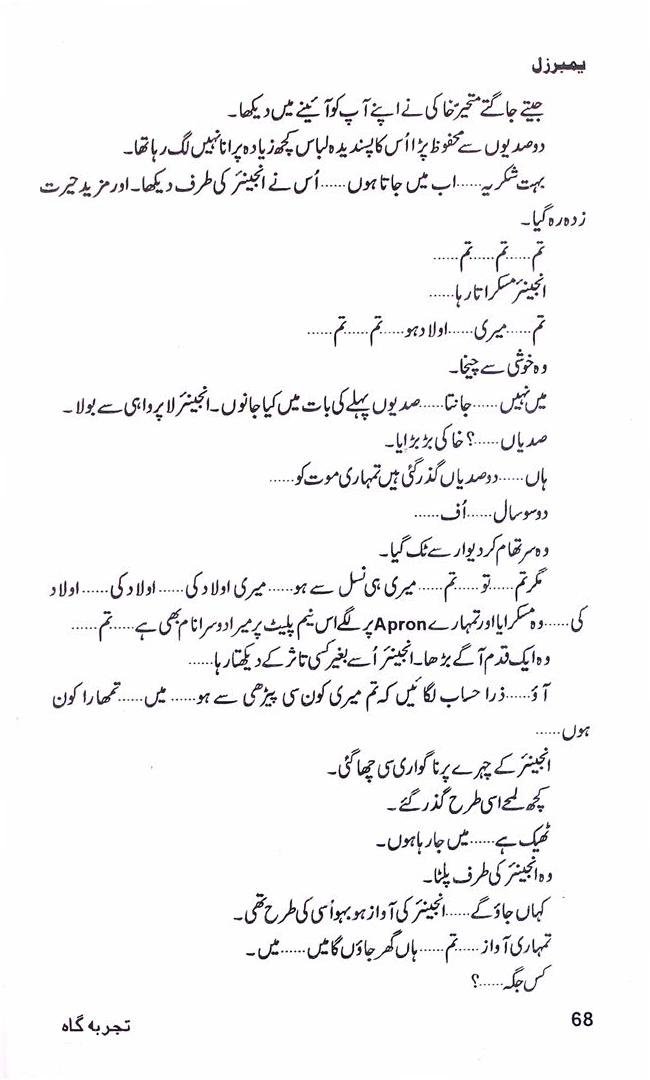 یمبرزل
جیتے جاگتے متحیر خاکی نے اپنے آپ کو آئینے میں دیکھا۔
دو صدیوں سے محفوظ پڑا اُس کا پسندیدہ لباس کچھ زیادہ پرانا نہیں لگ رہا تھا۔
بہت شکریہ......اب میں جاتا ہوں......اُس نے انجینئر کی طرف دیکھا۔ اور مزید حیرت
زدہ رہ گیا۔
تم......تم......تم......
انجینئر مسکراتا رہا......
تم......میری......اولاد ہو......تم......تم......
وہ خوشی سے چیخا۔
میں نہیں......جانتا......صدیوں پہلے کی بات میں کیا جانوں۔ انجینئر لاپرواہی سے بولا۔
صدیاں......؟ خاکی بڑبڑایا۔
ہاں......دو صدیاں گذر گئی ہیں تمہاری موت کو......
دو سو سال......اُف......
وہ سر تھام کر دیوار سے ٹک گیا۔
مگر تم......تو......تم......میری ہی نسل سے ہو......میری اولاد کی......اولاد کی......اولاد
کی......وہ مسکرایا اور تمہارے Apron پر لگے اس نیم پلیٹ پر میرا دوسرا نام بھی ہے......تم......
وہ ایک قدم آگے بڑھا۔ انجینئر اُسے بغیر کسی تاثر کے دیکھتا رہا......
آؤ......ذرا حساب لگائیں کہ تم میری کون سی پیڑھی سے ہو......میں......تمھارا کون
ہوں......
انجینئر کے چہرے پر ناگواری سی چھا گئی۔
کچھ لمحے اسی طرح گذر گئے۔
ٹھیک ہے......میں جا رہا ہوں۔
وہ انجینئر کی طرف پلٹا۔
کہاں جاؤ گے......انجینئر کی آواز ہو بہو اُسی کی طرح تھی۔
تمہاری آواز......تم......ہاں گھر جاؤں گا میں......میں۔
کس جگہ......؟
68
تجربہ گاہ